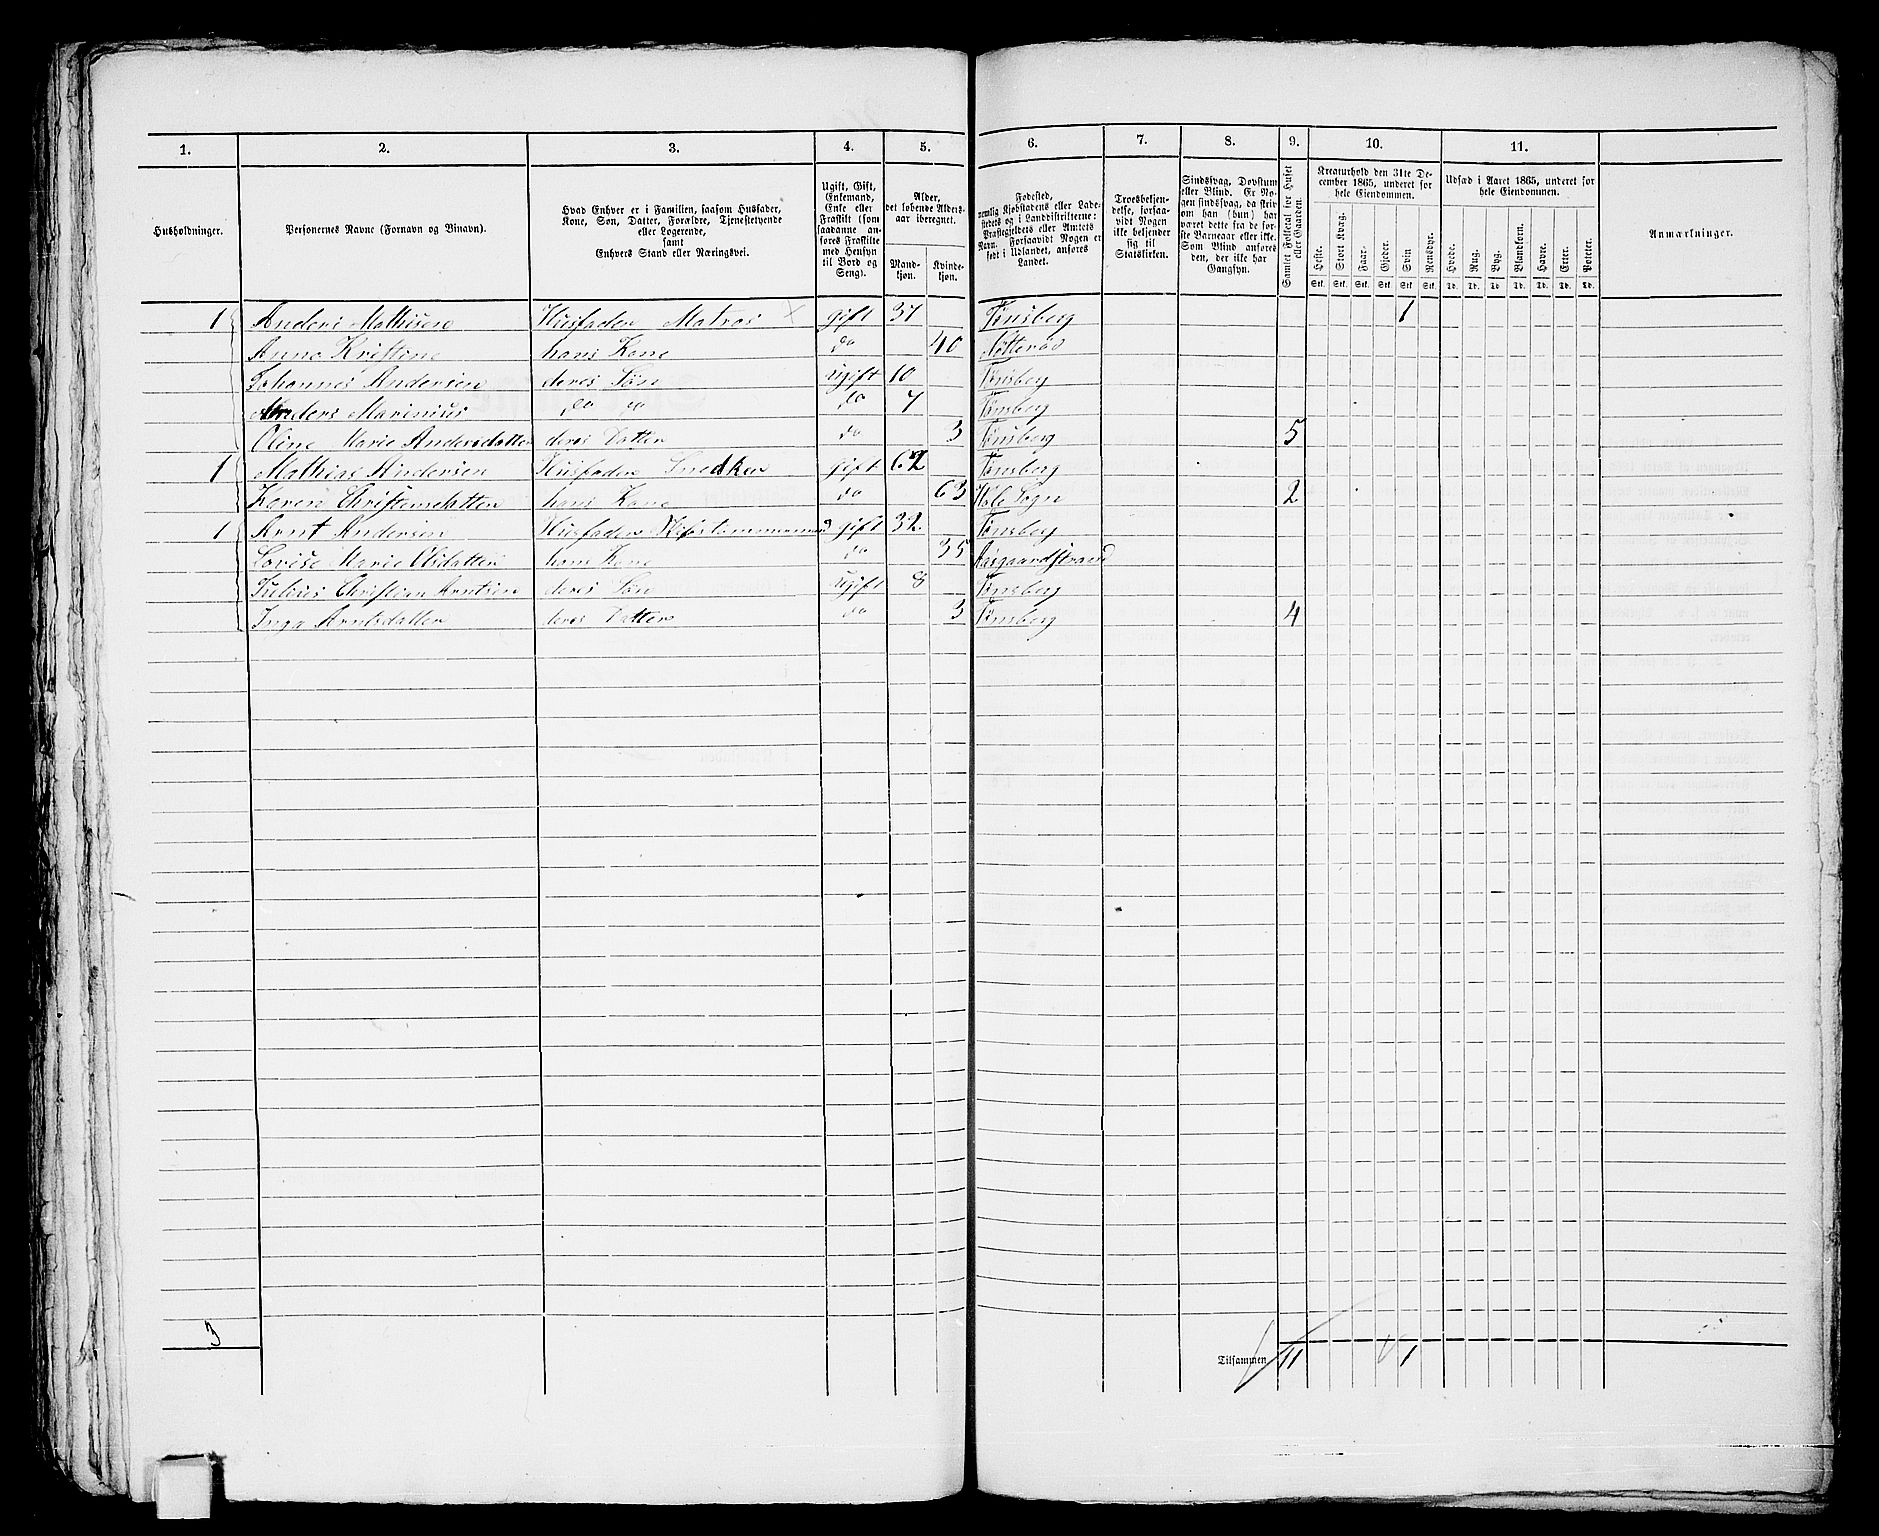 1. 2. 3. 4. 5. 6. 7. 8. 9. 10. 11.
Husholdninger.
Personernes Navne (Fornavn og Binavn).
Hvad Enhver er i Familien, saasom Husfader,
Kone, Søn, Datter, Forældre, Tjenestetyende
eller Logerende,
samt
Enhvers Stand eller Næringsvei.
Ugift, Gift,
Enkemand,
Enke eller
Fraskilt (som
saadanne an-
føres Fraskilte
med Hensyn
til Bord og
Seng).
Alder,
det løbende Alders-
aar iberegnet.
Mand-
kjøn.
Kvinde-
kjøn.
Fødested,
nemlig Kjøbstadens eller Lade-
stedets og i Landdistrikterne:
Præstegjeldets eller Amtets
Navn. Forsaavidt Nogen er
født i Udlandet, anføres
Landet.
Troesbekjen-
delse, forsaa-
vidt Nogen
ikke bekjender
sig til
Statskirken.
Sindssvag, Døvstum
eller Blind. Er No-
gen sindssvag, da skriv
om han (hun) har
været dette fra de før-
ste Barneaar eller ikke.
Som Blind anføres
den, der ikke har
Gangsyn.
Samlet Folketal for Huset
eller Gaarden.
Kreaturhold den 31te De-
cember 1865, underet for
hele Eiendommen.
Heste. Stort Kvæg. Faar. Gjeder. Svin Rensdyr.
Stk. Stk. Stk. Stk. Stk Stk.
Udsæd i Aaret 1865, underet for
hele Eiendommen.
Hvede. Rug. Byg. Blandkorn. Havre. Erter. Poteter.
Td. Td. Td Td. Td. Td. Td.
Anmærkninger.
1 Anders Mathisen Husfader Matros × gift 37 Tønsberg 1
Anne Kristine hans Kone do 40 Nøtterø
Johannes Andersen deres Søn ugift 10 Tønsberg
Anders Marinius do do do 7 Tønsberg
Oline Marie Andersdatter deres Datter do 3 Tønsberg 5
1 Mathias Andersen Husfader Snedker gift 62 Tønsberg
Karen Christensdatter hans Kone do 63 Sogn 2
1 Arnt Andersen Husfader gift 32 Tønsberg
Lovise Marie Olsdatter hans Kone do 35 Aasgaardstrand
Julius Christian Arntsen deres Søn ugift 8 Tønsberg
Inga Arntsdatter deres Datter do 3 Tønsberg 4
3
Tilsammen 11 1